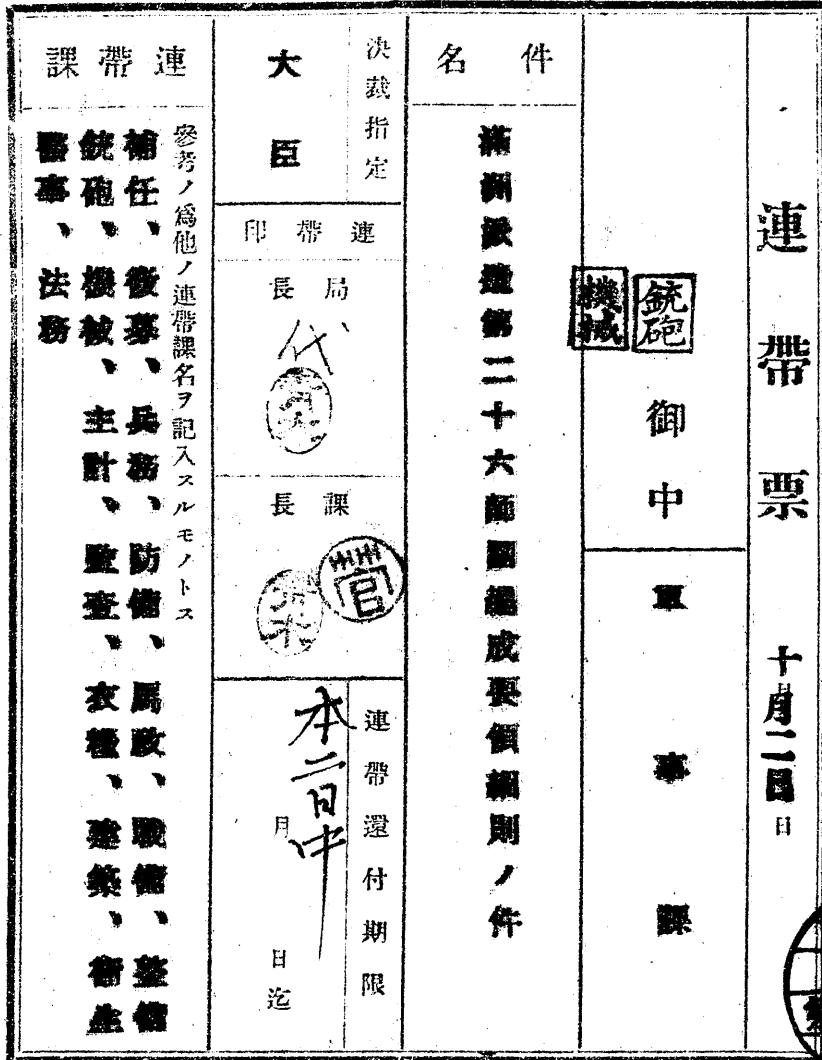 連帶票
十月二日
銃砲
機械
御中
軍事課
件名
滿洲派遣第二十六師團編成要領細則ノ件
決裁指定
大臣
連帶印
局長
代
課長
菅
連帶還付期限
月日迄
本二日中
連帶課
參考ノ爲他ノ連帶課名ヲ記入スルモノトス
補任、徵募、兵務、防備、馬政、戰備、整備
銃砲、機械、主計、監查、衣糧、建築、衞生
醫事、法務